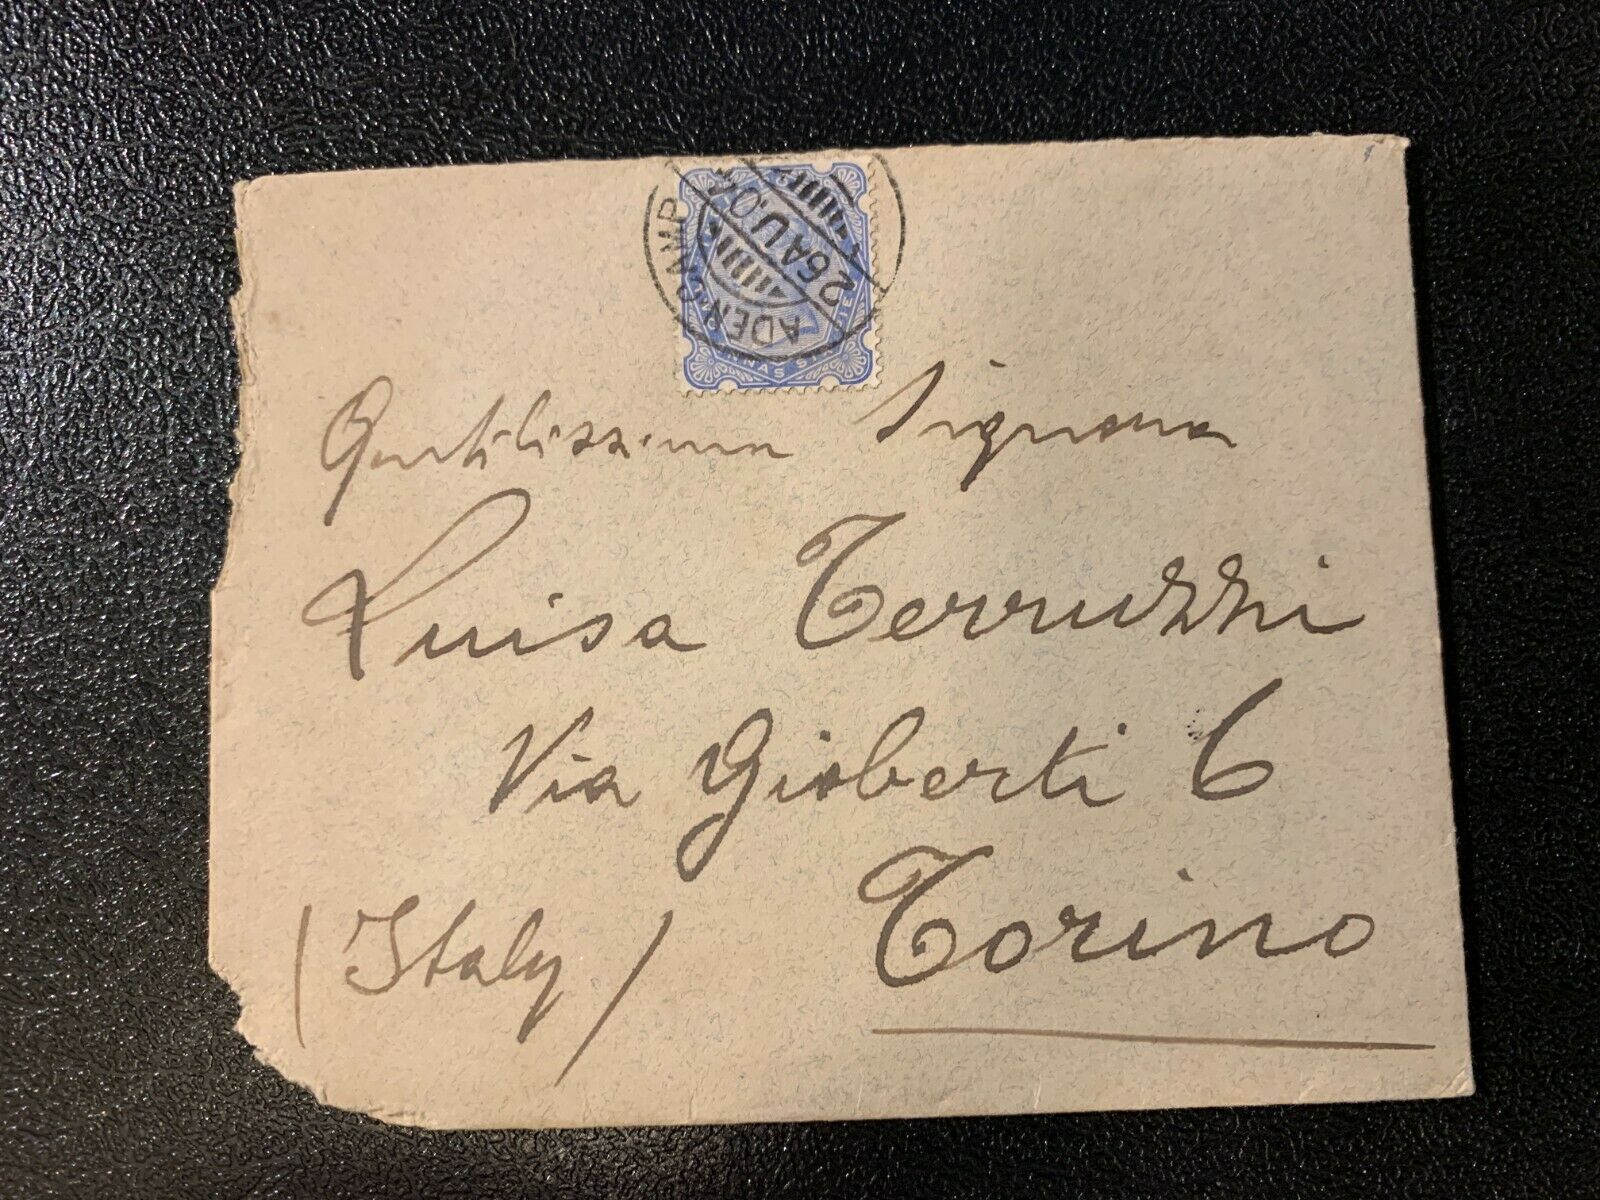 ADEN CAMP
26 AU.0
ANNAS
Gentilissima Signora
Luisa Terruzzi
Via Gioberti 6
Torino
(Italy)